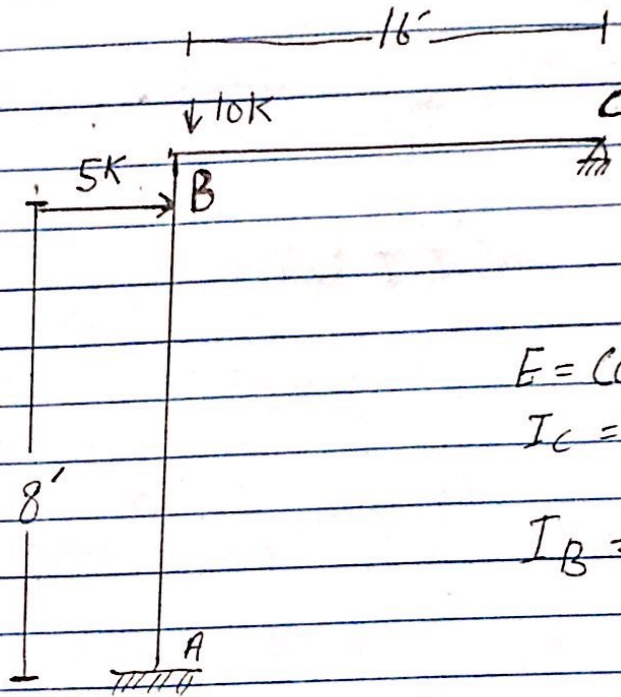 16'
↓10K
C
5K
B
E = C
I_C =
8'
I_B =
A